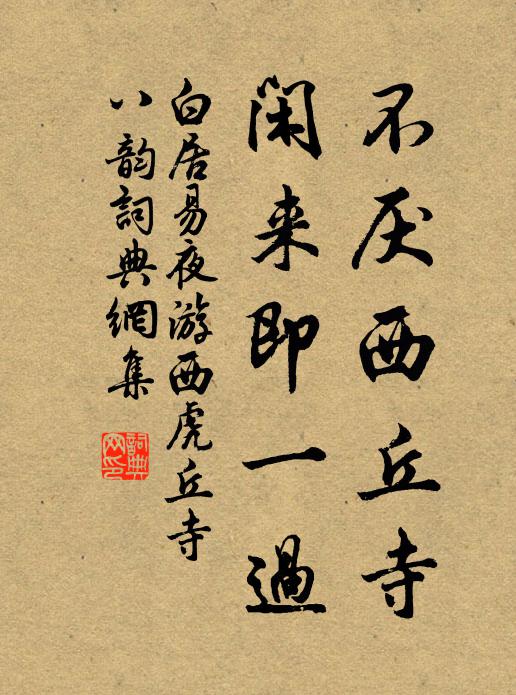 不厌西丘寺
闲来即一過
白居易夜游西虎丘寺
八韵詞典網集
詞典网印